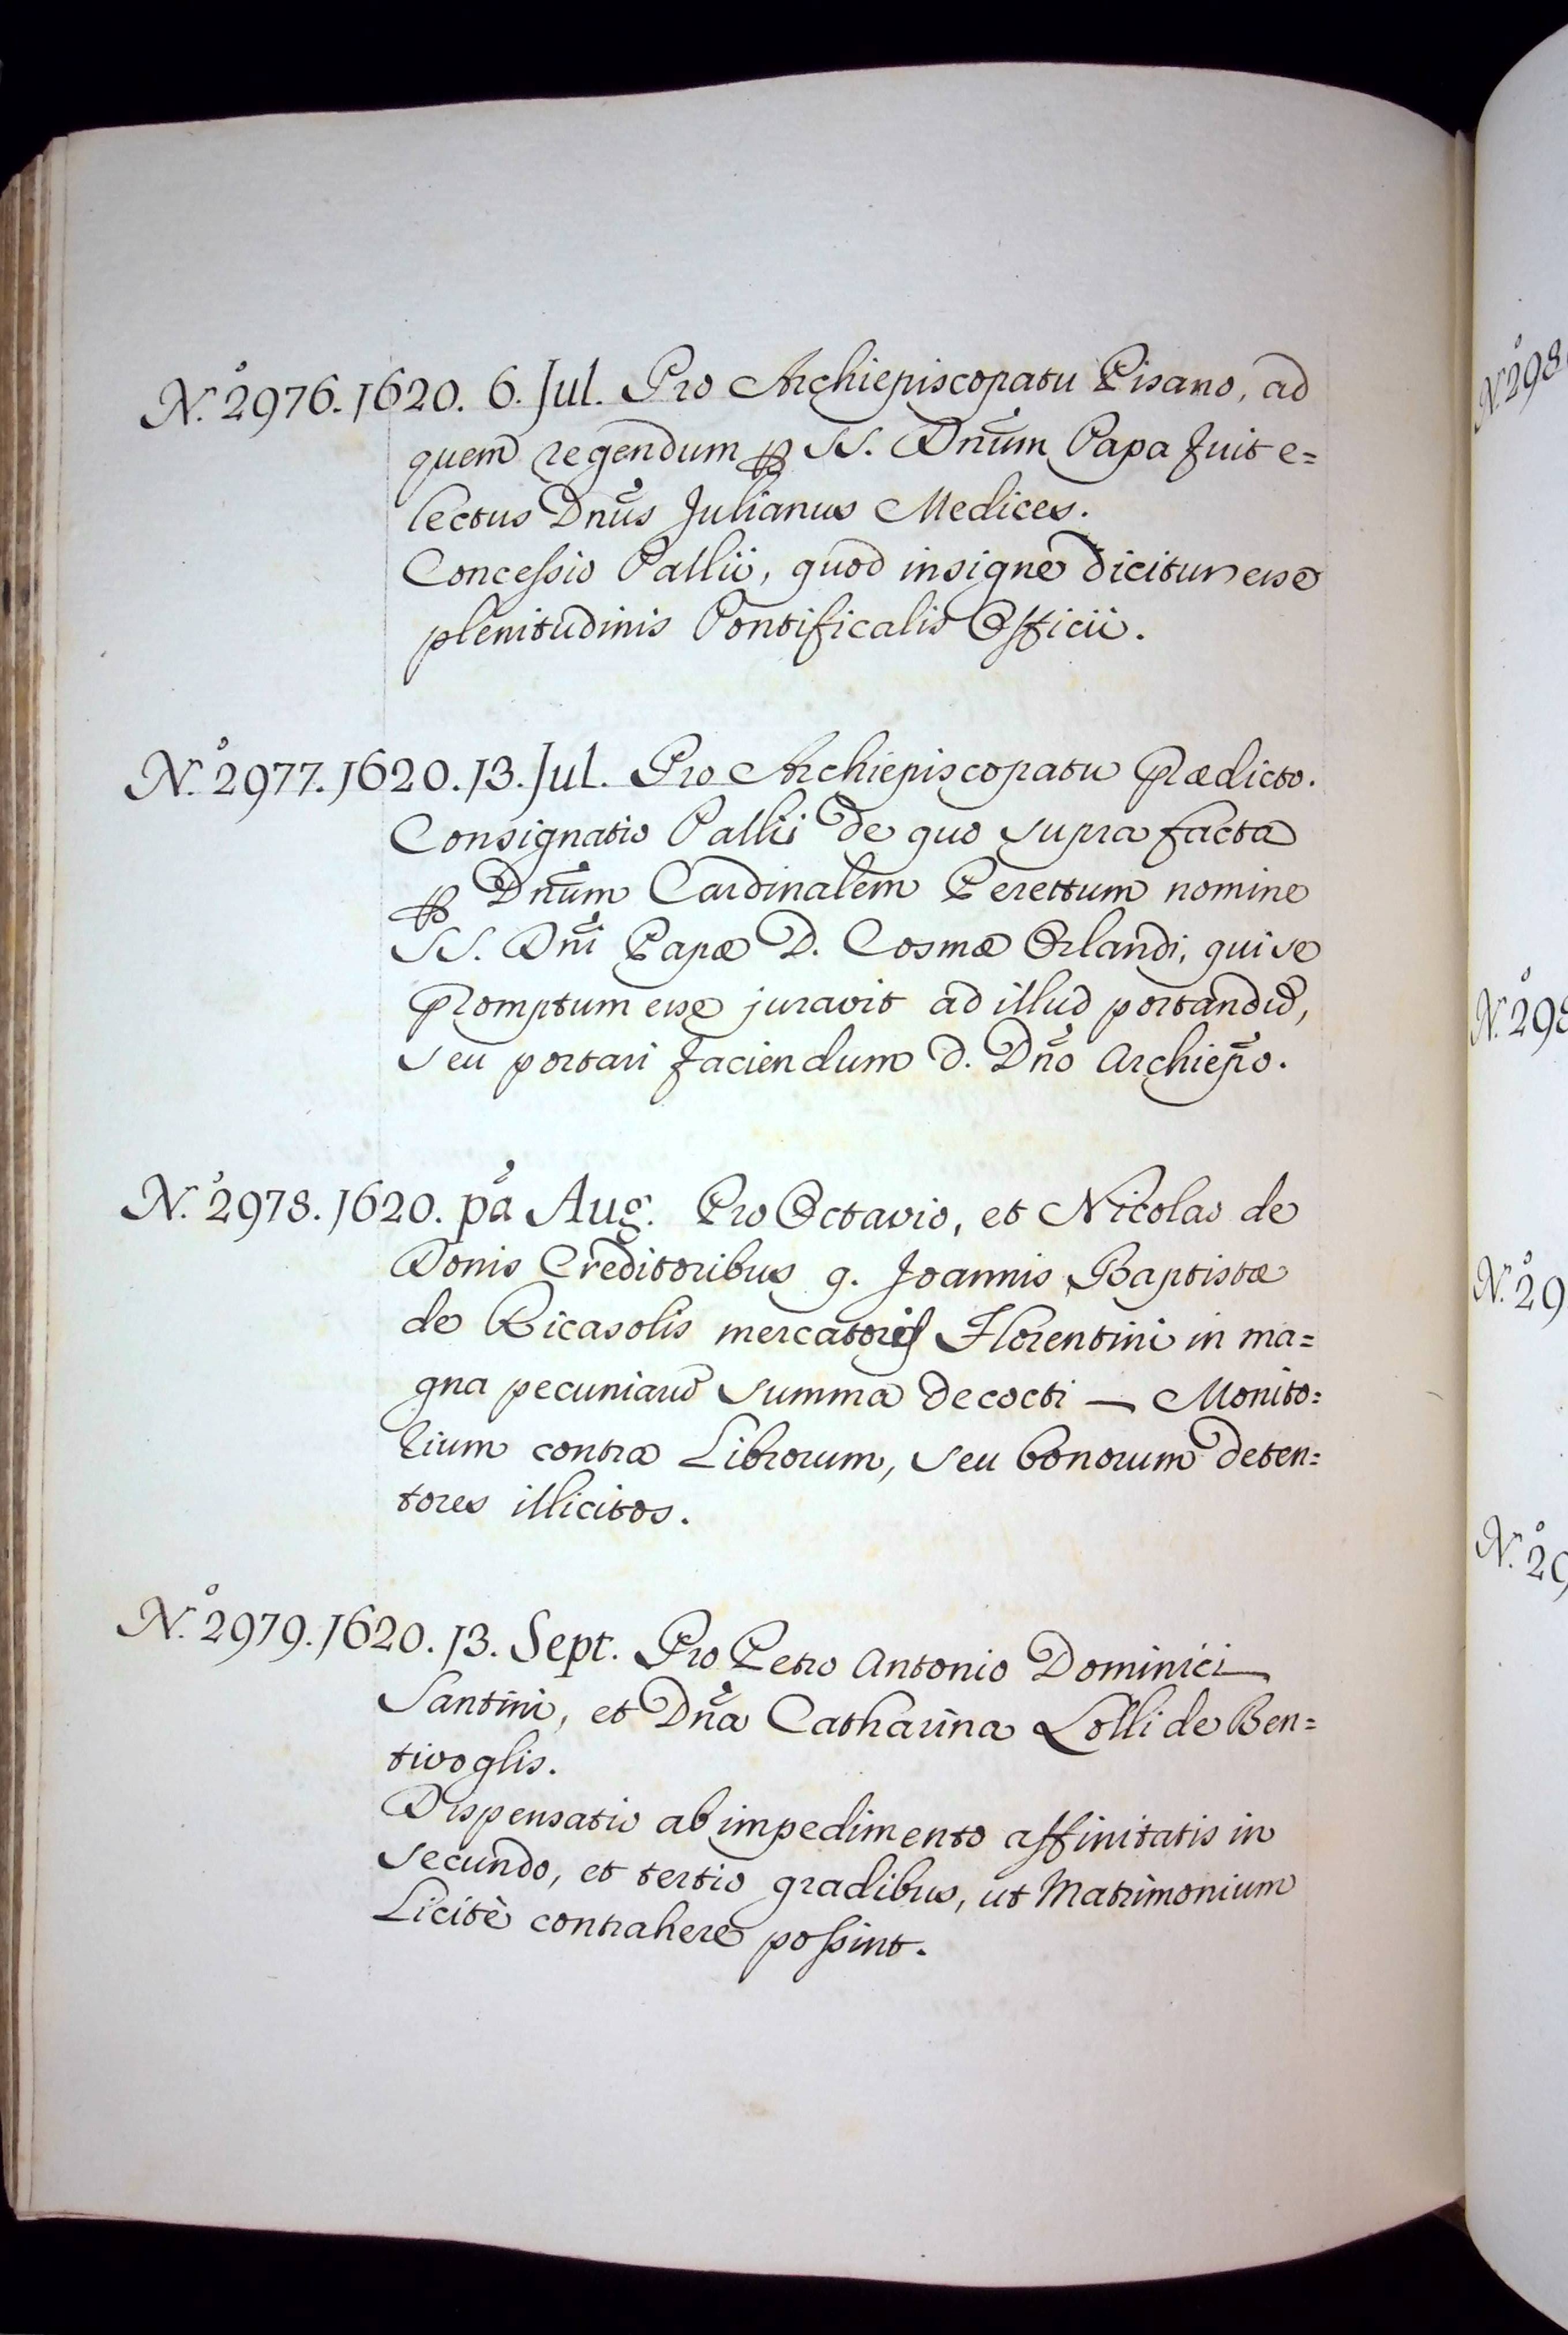 N.º 2976. 1620. 6. Jul. Pro Archiepiscopatu Pisano, ad
quem regendum ꝑ SS. Dnũm Papa fuit e=
lectus Dnũs Julianus Medices.
Concessio Pallii, quod insigne dicitur esse
plenitudinis Pontificalis Officii.
N.º 2977. 1620. 13. Jul. Pro Archiepiscopatu Prædicto.
Consignatio Pallii de quo supra facta
ꝑ Dnũm Cardinalem Perettum nomine
SS. Dnĩ Papæ D. Cosmæ Orlandi, qui se
Promptum esse juravit ad illud portandũ,
seu portari faciendum d. Dnõ Archiepõ.
N.º 2978. 1620. pã Aug. Pro Octavio, et Nicolao de
Donis Creditoribus q. Joannis Baptistæ
de Ricasolis mercatoris Florentini in ma=
gna pecuniarũ summa decocti — Monito=
rium contra Librorum, seu bonorum deten=
tores illicitos.
N.º 2979. 1620. 13. Sept. Pro Petro Antonio Dominici
Santini, et Dnã Catharina Lolli de Ben=
tivoglis.
Dispensatio ab impedimento affinitatis in
secundo, et tertio gradibus, ut Matrimonium
Licitè contrahere possint.
N.º 298
N.º 298
N.º 29
N.º 29